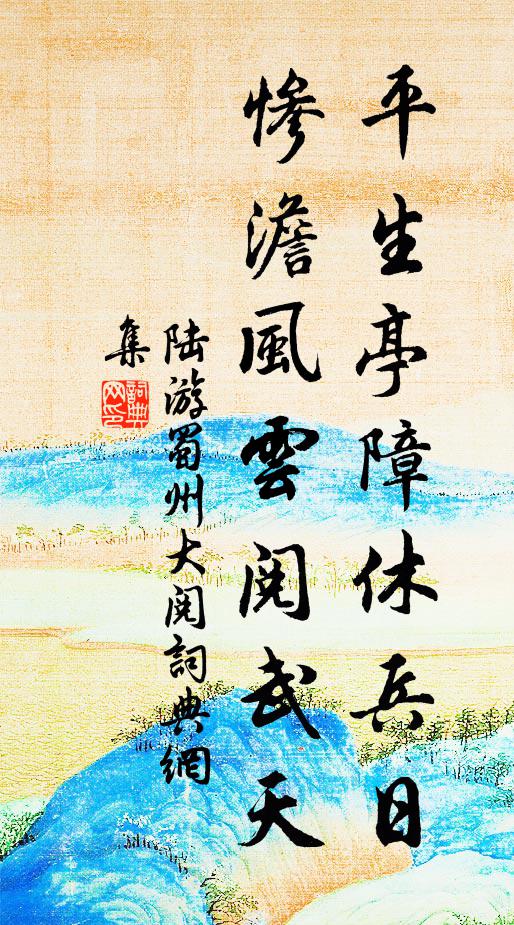 平生亭障休兵日
慘澹風雲閱武天
陸游蜀州大閱詞典網
集
詞典網印